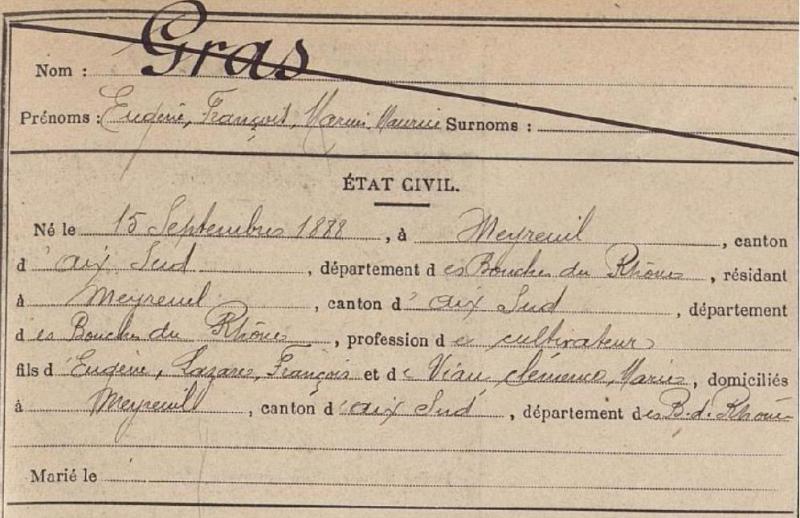 Nom : Gras
Prénoms : Eugène, François, Marius, Maurice Surnoms :
ÉTAT CIVIL.
Né le 15 Septembre 1888, à Meyreuil, canton
d'aix Sud, département des Bouches du Rhône, résidant
à Meyreuil, canton d'aix Sud, département
des Bouches du Rhône, profession de cultivateur
fils d'Eugène, Lazare, François et de Viau clémence, Marie, domiciliés
à Meyreuil, canton d'aix Sud, département des B. d. Rhône
Marié le